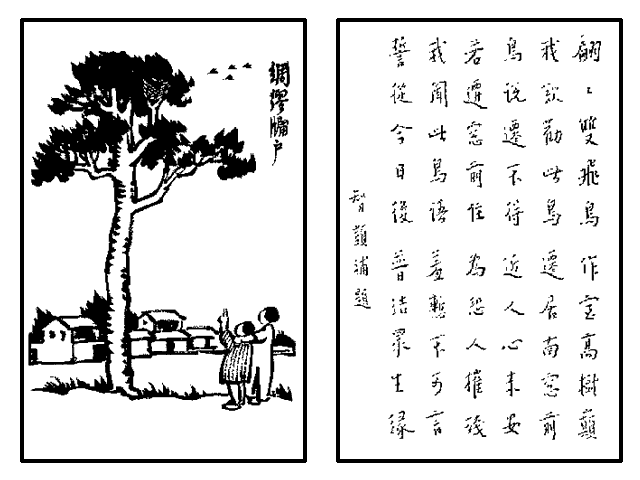 綢繆牖戶
翩〻雙飛鳥 作室高樹巔
我欲勸此鳥 遷居南窓前
鳥説遷不得 近人心未安
若遷窓前住 為恐人摧殘
我聞此鳥語 羞慙不可言
誓從今日後 普結眾生緣
智顗補題